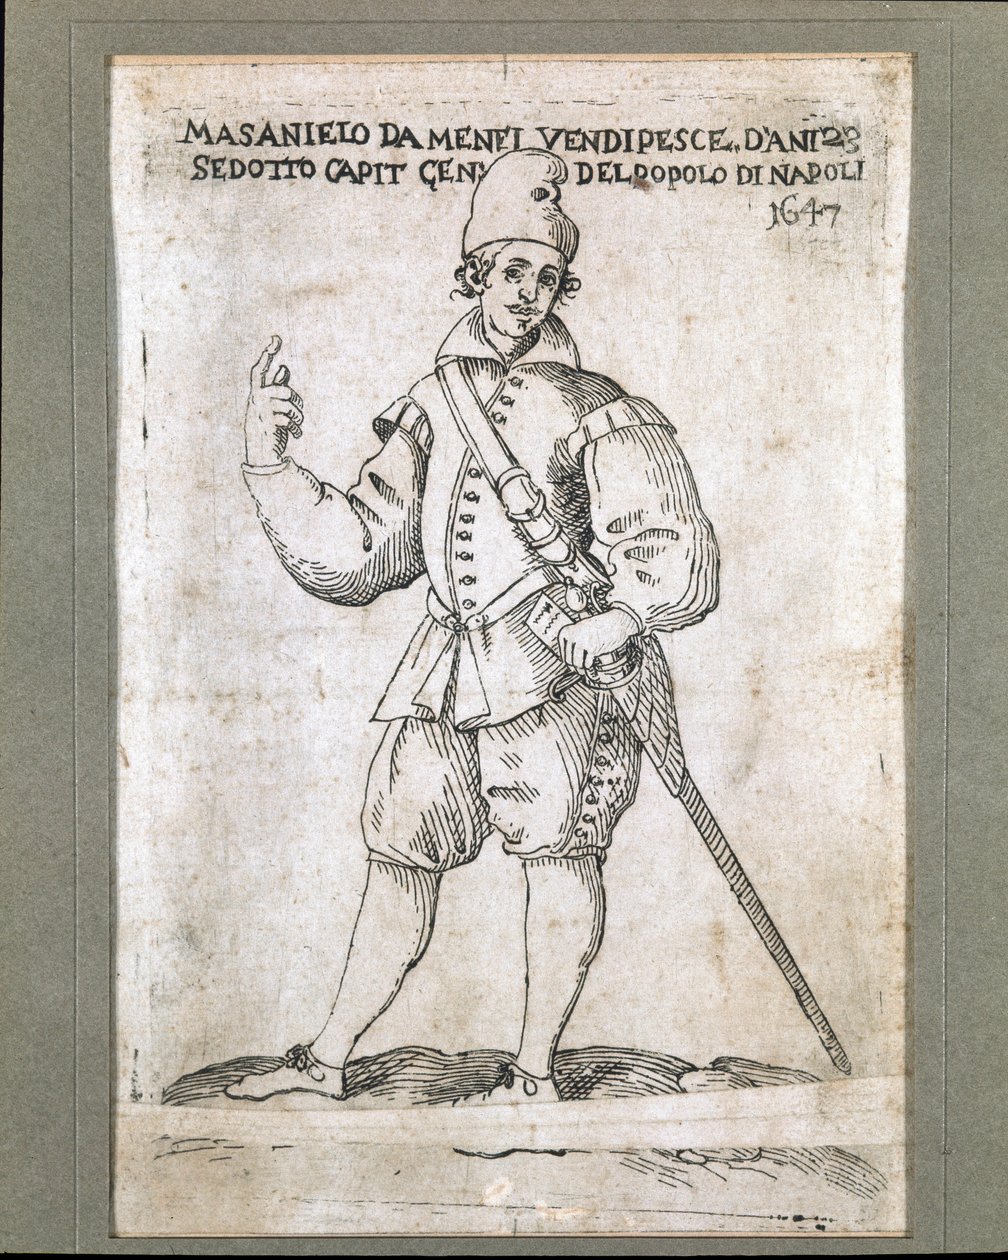 MASANIELO DA MENFI VENDIPESCE, D'ANI 23
SEDOTTO CAPIT GEN DEL POPOLO DI NAPOLI
1647